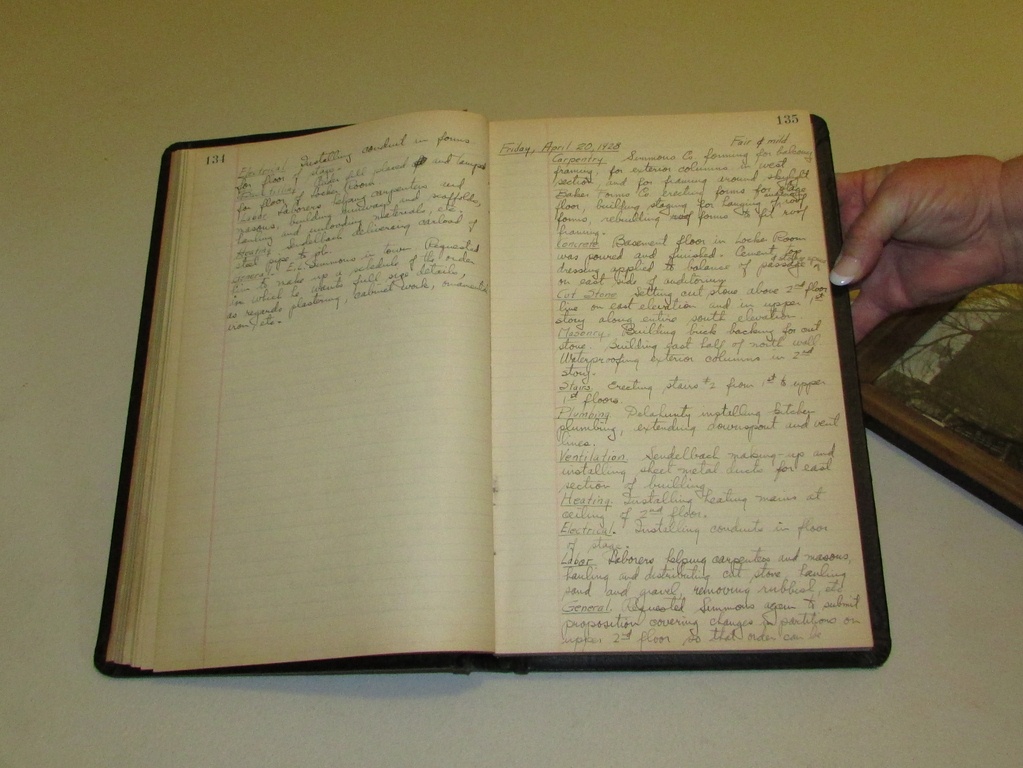 134
Electrical. Installing conduit in forms
for floor of stage.
fill placed and tamped
for floor of Locker Room
Labor. Laborers helping carpenters and
masons, building runway and scaffolds,
hauling and unloading materials, etc.
Heating. Sendelbach delivering carload of
steel pipe to job
General. E.L. Simmons in town. Requested
him to make up a schedule of the order
in which he wants full size details,
as regards plastering, cabinet work, ornamental
iron, etc.
135
Friday, April 20, 1928 Fair & mild.
Carpentry. Simmons Co forming for balcony
framing, for exterior columns in west
section, and for framing around skylight
Baker Forms Co erecting forms for stage
floor, building staging for hanging of roof
forms, rebuilding roof forms to fit roof
framing.
Concrete. Basement floor in Locker Room
was poured and finished. Cement top
dressing applied to balance of passage
on east side of auditorium
Cut Stone. Setting cut stone above 2nd floor
line on east elevation and in upper 1st
story along entire south elevation.
Masonry. Building brick backing for cut
stone. Building east half of north wall.
Waterproofing exterior columns in 2nd
story.
Stairs. Erecting stairs #2 from 1st to upper
1st floors.
Plumbing. Delahunty installing kitchen
plumbing, extending downspout and vent
lines.
Ventilation. Sendelbach making-up and
installing sheet-metal ducts for east
section of building.
Heating. Installing heating mains at
ceiling of 2nd floor.
Electrical. Installing conduits in floor
of stage.
Labor. Laborers helping carpenters and masons,
hauling and distributing cut stone, hauling
sand and gravel, removing rubbish, etc
General. Requested Simmons again to submit
proposition covering changes in partitions on
upper 2nd floor so that order can be